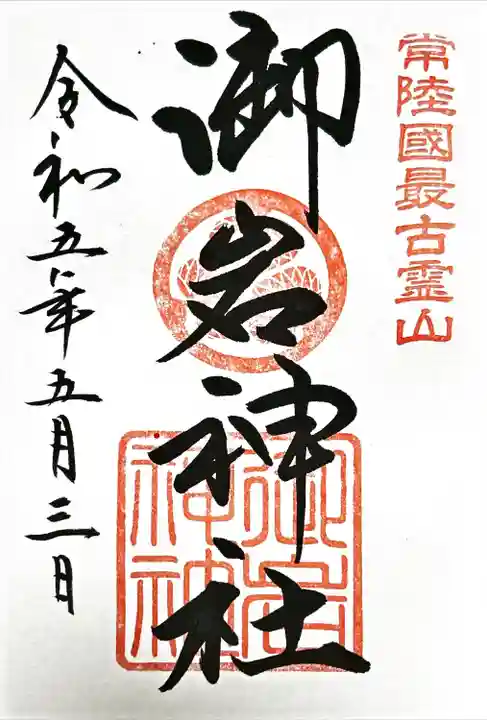 常陸國最古霊山
御岩神社
御岩神社
令和五年五月三日